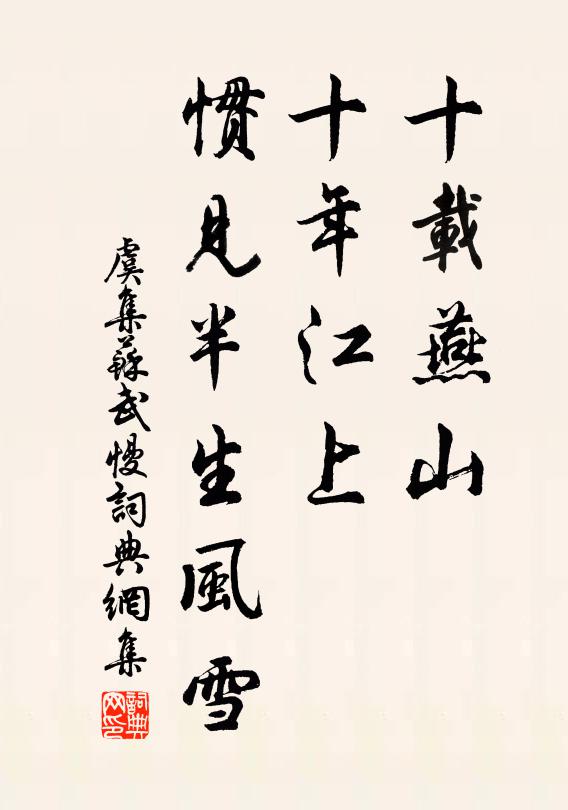 十載燕山
十年江上
慣見半生風雪
虞集蘇武慢詞典網集
詞典網印